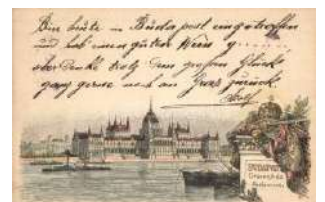 Bin heute in Budapest eingetroffen
und hab einen guten Wein g
aber denke trotz dem großen Glück
ganz gerne nach an Graz zurück.
BUDAPEST
Országház